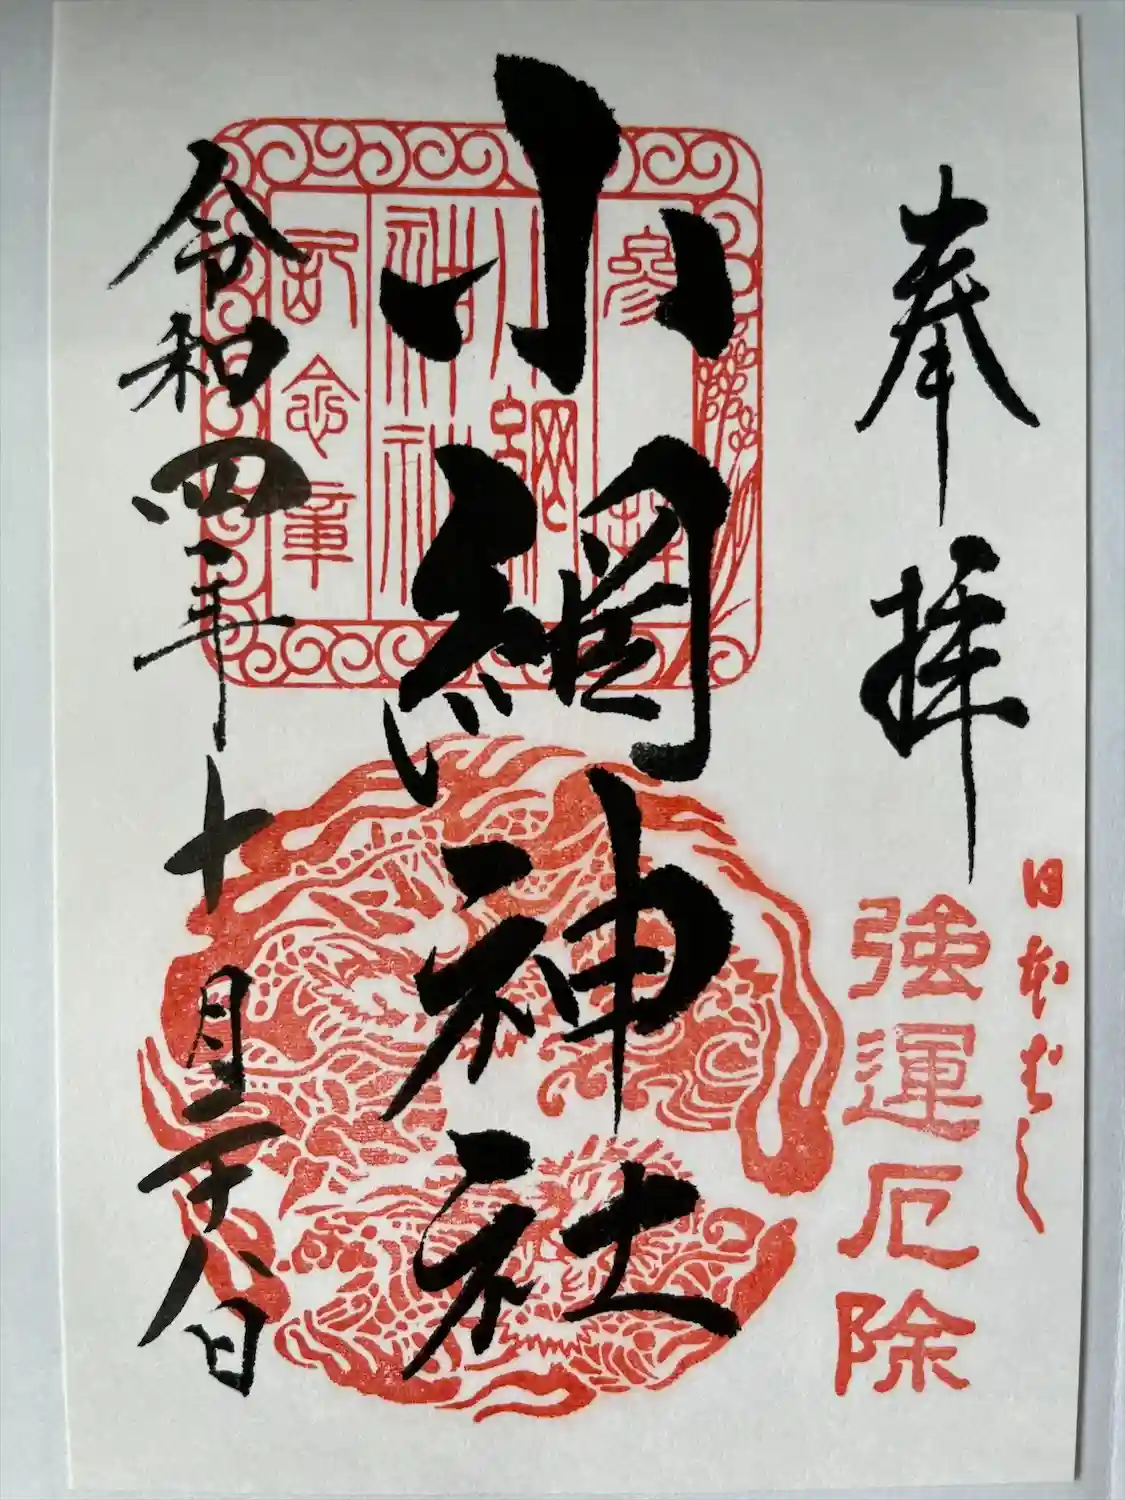 奉拝
日本ばし
強運厄除
小網神社
参拝
小網
神社
記念章
令和四年十月二十八日